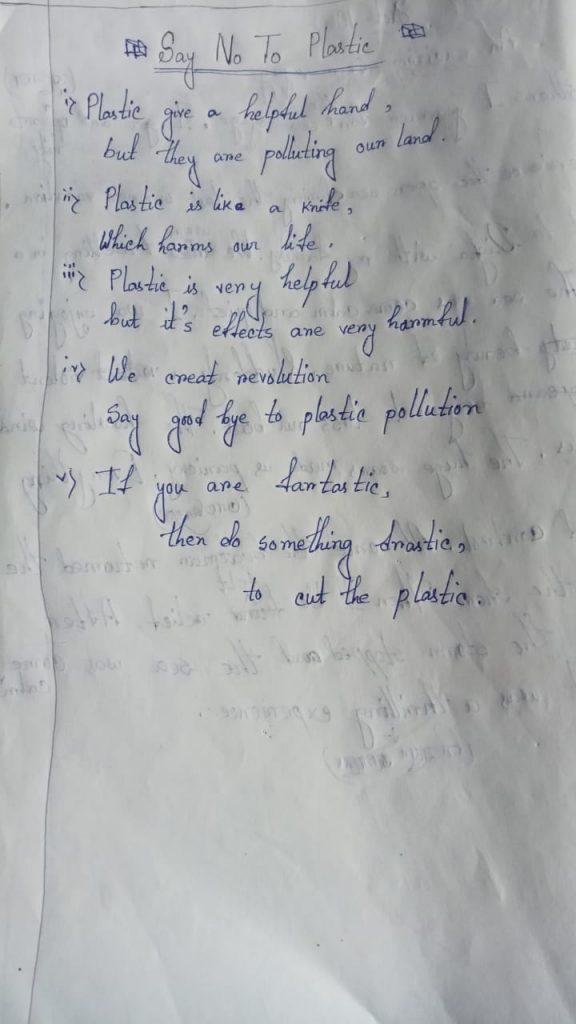 Say No To Plastic
i> Plastic give a helpful hand,
but they are polluting our land.
ii> Plastic is like a knife,
Which harms our life.
iii> Plastic is very helpful
but it's effects are very harmful.
iv> We creat revolution
Say good bye to plastic pollution
v> If you are fantastic,
then do something drastic,
to cut the plastic.